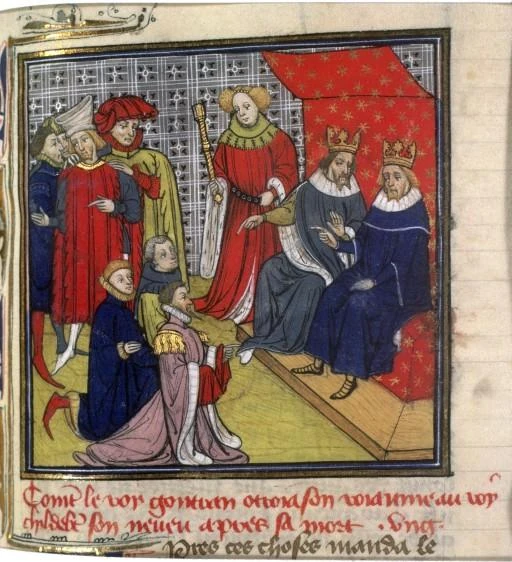 Come le roy gontran otroia son roiaume au roy
childebt son neueu apres sa mort . Vng
Pres ces choses manda le